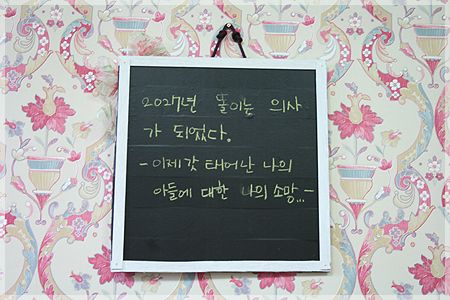 2027년 똘이는 의사
가 되었다.
- 이제 갓 태어난 나의
아들에 대한 나의 소망... -